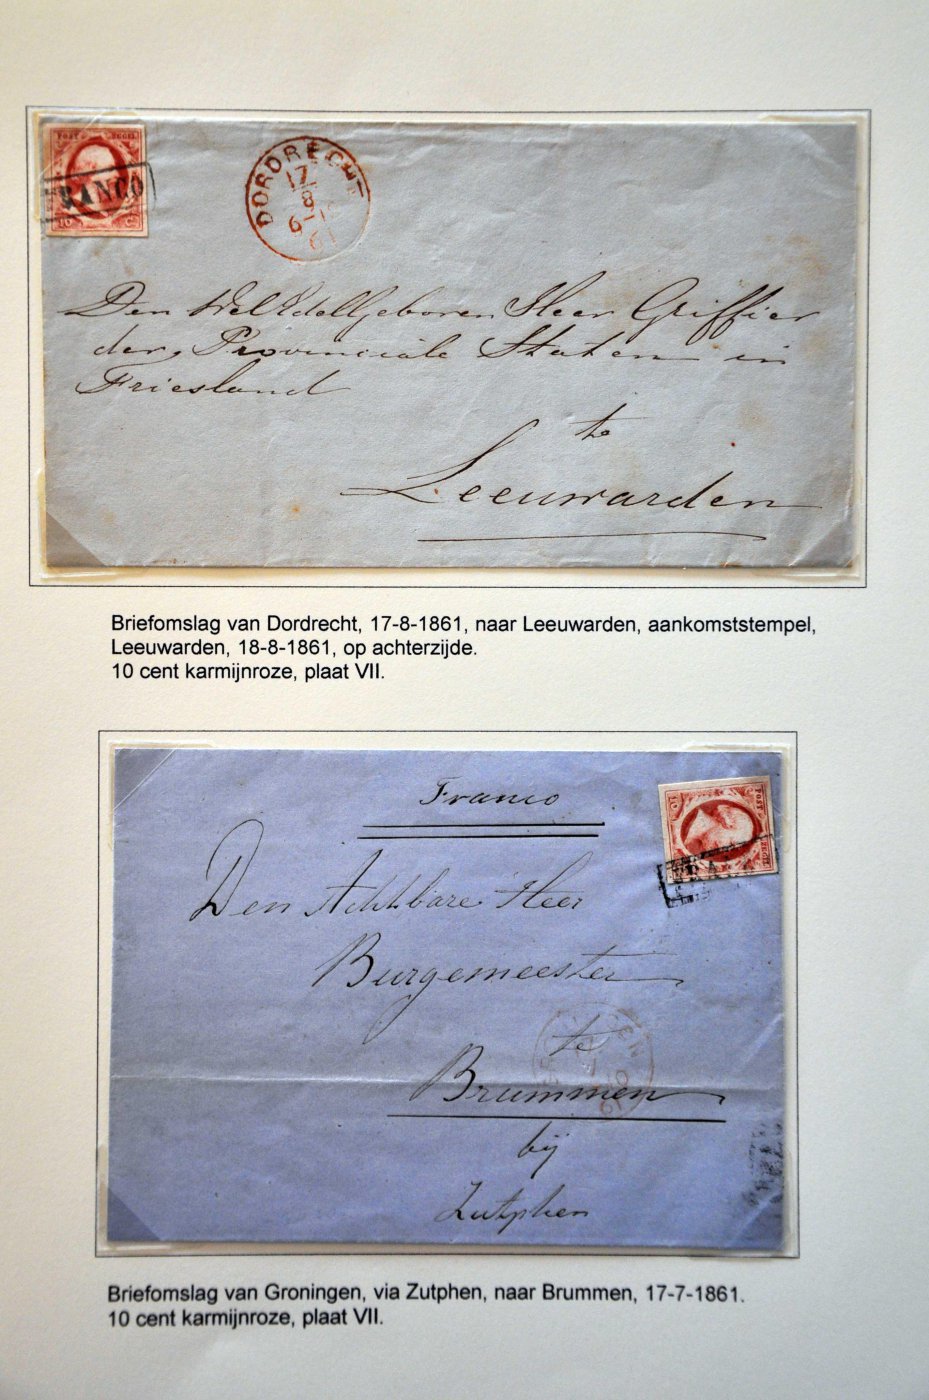 POST ZEGEL
FRANCO
10 C.
DORDRECHT
17
8
61
Den WelEdelGeboren Heer Griffier
der Provinciale Staten in
Friesland
te
Leeuwarden
Briefomslag van Dordrecht, 17-8-1861, naar Leeuwarden, aankomststempel,
Leeuwarden, 18-8-1861, op achterzijde.
10 cent karmijnroze, plaat VII.
Franco
POST ZEGEL
Den Achtbare Heer
Burgemeester
te
Brummen
bij
Zutphen
Briefomslag van Groningen, via Zutphen, naar Brummen, 17-7-1861.
10 cent karmijnroze, plaat VII.